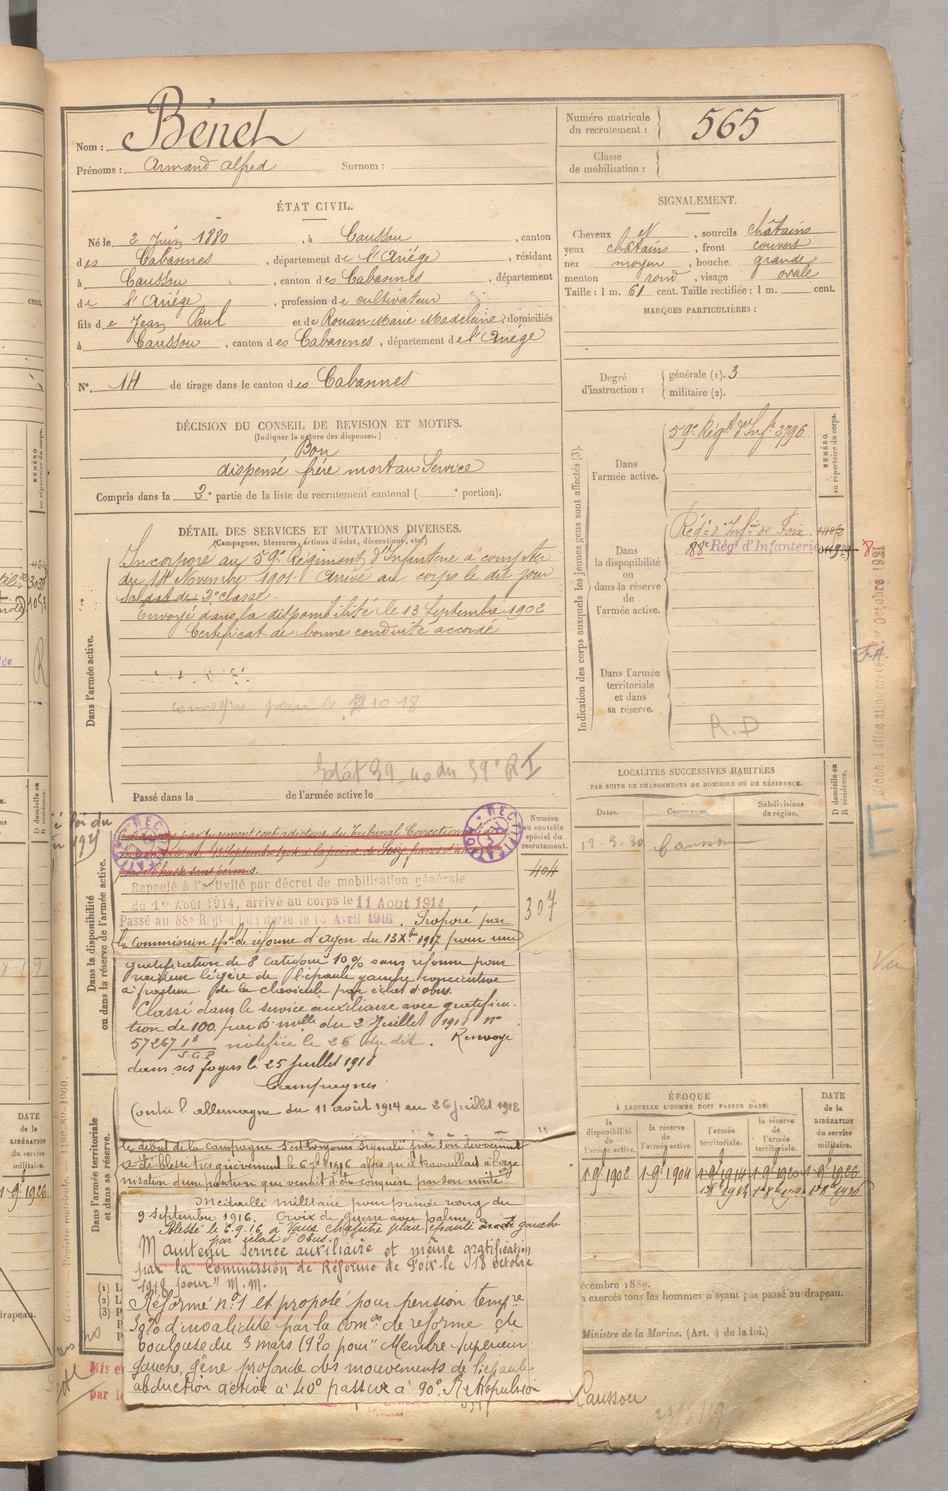 Nom : Bénet
Prénoms : Armand Alfred Surnom :
Numéro matricule du recrutement : 565
Classe de mobilisation :
ÉTAT CIVIL.
Né le 2 Juin 1880, à Caussou, canton
des Cabannes, département de l'Ariége, résidant
à Caussou, canton des Cabannes, département
de l'Ariége, profession de cultivateur
fils de Jean Paul et de Rouan Marie Madeleine, domiciliés
à Caussou, canton des Cabannes, département de l'Ariége
N° 14 de tirage dans le canton des Cabannes
SIGNALEMENT.
Cheveux et, sourcils châtains
yeux châtains, front couvert
nez moyen, bouche grande
menton rond, visage ovale
Taille : 1 m. 61 cent. Taille rectifiée : 1 m. cent.
MARQUES PARTICULIÈRES :
Degré d'instruction : générale (1). 3
militaire (2).
DÉCISION DU CONSEIL DE REVISION ET MOTIFS.
(Indiquer la nature des dispenses.)
Bon
dispensé frère mort au Service
Compris dans la 2e partie de la liste du recrutement cantonal ( e portion).
DÉTAIL DES SERVICES ET MUTATIONS DIVERSES.
(Campagnes, blessures, actions d'éclat, décorations, etc.)
Dans l'armée active.
Incorporé au 59e Régiment d'Infanterie à compter
du 14 Novembre 1901. Arrivé au corps le dit jour
Soldat de 2e classe.
Envoyé dans la disponibilité le 13 Septembre 1902
Certificat de bonne conduite accordé
Passé dans la de l'armée active le
Indication des corps auxquels les jeunes gens sont affectés (3).
NUMÉRO au répertoire du corps.
Dans l'armée active.
59e Régt d'Infie 3796
Dans la disponibilité ou dans la réserve de l'armée active.
Régt d'Infie de Foix
88e Régt d'Infanterie
Dans l'armée territoriale et dans sa réserve.
R.D
LOCALITÉS SUCCESSIVES HABITÉES
PAR SUITE DE CHANGEMENTS DE DOMICILE OU DE RÉSIDENCE.
Dates. Communes. Subdivisions de région. D domicile ou R résidence.
12-3-30 Caussou
Numéro au contrôle spécial du recrutement.
404
307
Dans la disponibilité ou dans la réserve de l'armée active.
RECTIFICATION
RECTIFICATION
par Jugement contradictoire du Tribunal Correctionnel
du 13 Septembre 1904 à la peine de Seize francs d'amende
Rappelé à l'activité par décret de mobilisation générale
du 1er Août 1914, arrivé au corps le 11 Août 1914
Passé au 88e Régt d'Infanterie le 15 Avril 1916. Proposé par
la Commission spéc de réforme d'Agen du 13 Xbre 1917 pour une
gratification de 8e catégorie 10% sans réforme pour
raideur légère de l'épaule gauche consécutive
à fracture de la clavicule par éclat d'obus.
Classé dans le service auxiliaire avec gratifica-
tion de 100 par Don mlle du 2 Juillet 1918 n°
57267 notifiée le 26 du dit. Renvoyé
dans ses foyers le 25 Juillet 1918
Campagnes
Contre l'allemagne du 11 août 1914 au 26 Juillet 1918
Dans l'armée territoriale et dans sa réserve.
le début de la campagne s'est toujours signalé par son dévouement
a été blessé très grièvement le 6 7bre 1916 alors qu'il travaillait à l'orga-
nisation d'une position que venait d'être conquise par son unité
Médaille militaire pour prendre rang du
9 septembre 1916. Croix de guerre avec palme
Blessé le 6.9.16 à Vaux Chapitre plaie épaule gauche
par éclat d'obus.
Maintenu service auxiliaire et même gratification
par la Commission de Réforme de Foix le 18 octobre
1918 pour "M. M.
Réformé n°1 et proposé pour pension tempre
30% d'invalidité par la comon de réforme de
Toulouse du 3 mars 1920 pour "Membre supérieur
gauche, gêne profonde des mouvements de l'épaule
abduction active à 40° passive à 90°. Rétropulsion
ÉPOQUE
À LAQUELLE L'HOMME DOIT PASSER DANS:
la disponibilité de l'armée active.
la réserve de l'armée active.
l'armée territoriale.
la réserve de l'armée territoriale.
DATE de la LIBÉRATION du service militaire.
1 9bre 1902 1 9bre 1904 1 9bre 1914 1 9bre 1920 1 9bre 1926
décembre 1880.
a exercés tous les hommes n'ayant pas passé au drapeau.
Ministre de la Marine. (Art. 4 de la loi.)
Caussou